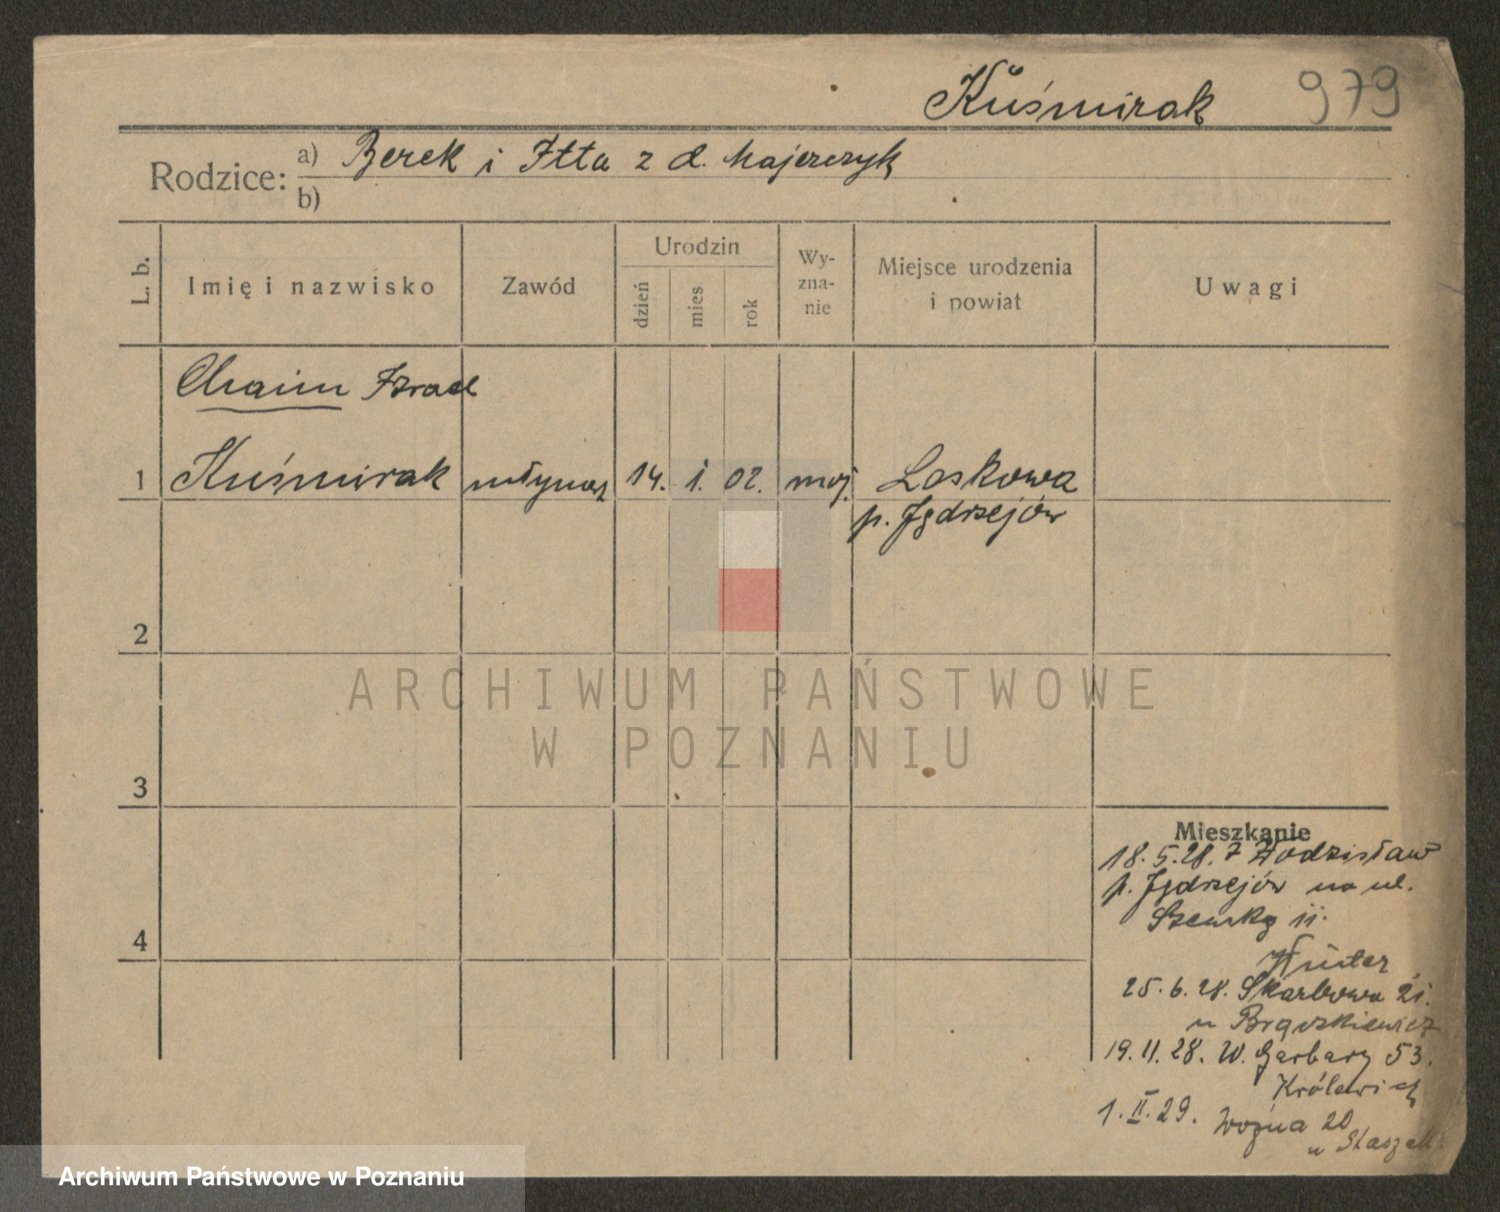 Kuśmirak 979
Rodzice: a) Berek i Itta z d. Majerczyk
b)
L. b. Imię i nazwisko Zawód Urodzin dzień mies rok Wy-zna-nie Miejsce urodzenia i powiat Uwagi
Chaim Izrael
1 Kuśmirak młynarz 14. 1. 02. moj. Laskowa
p. Jędrzejów
2
ARCHIWUM PAŃSTWOWE
W POZNANIU
3
Mieszkanie
18.5.28. z Wodzisław
p. Jędrzejów na ul.
4 Szewską 11.
25.6.28. Skarbowa 21.
u
19.11.28. W. Garbary 53.
Królewicz
1.II.29. Woźna 20
u Staszak
Archiwum Państwowe w Poznaniu